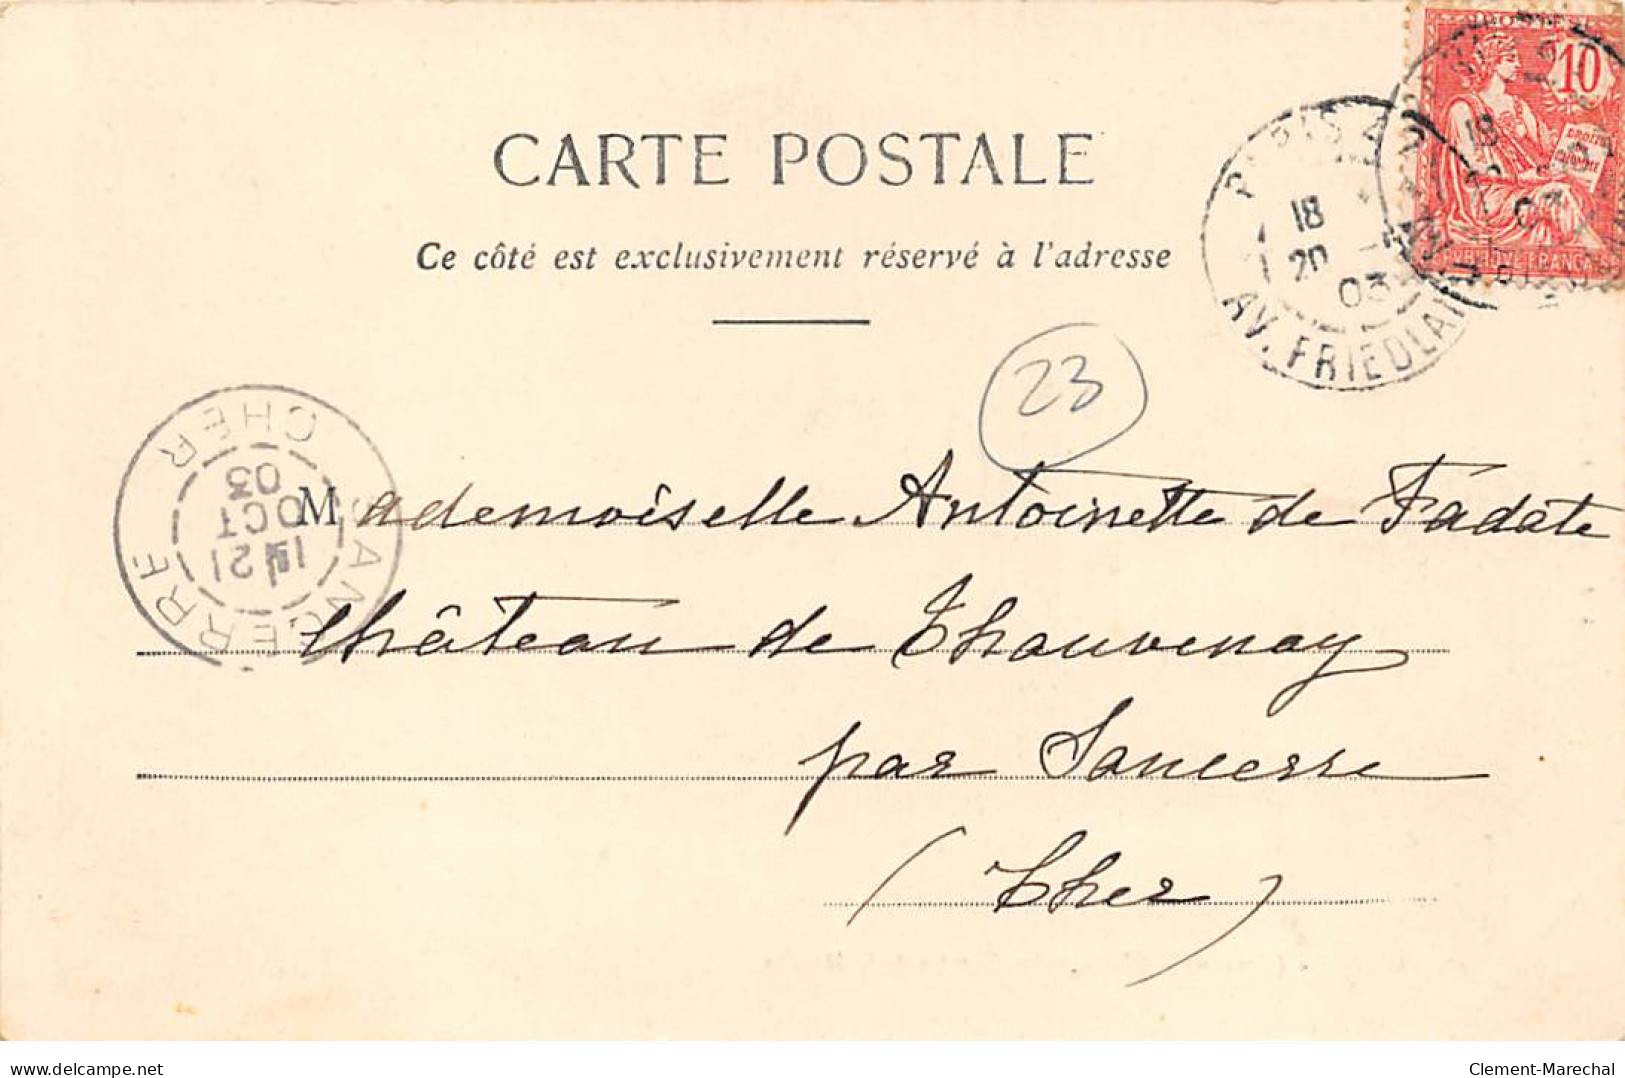 CARTE POSTALE
Ce côté est exclusivement réservé à l'adresse
10
RÉPUBLIQUE FRANÇAISE
PARIS
18
20
03
AV. FRIEDLAND
23
SANCERRE
CHER
21
OCT
03
Mademoiselle Antoinette de Fadate
Château de Thauvenay
par Sancerre
(Cher)
Clement-Marechal